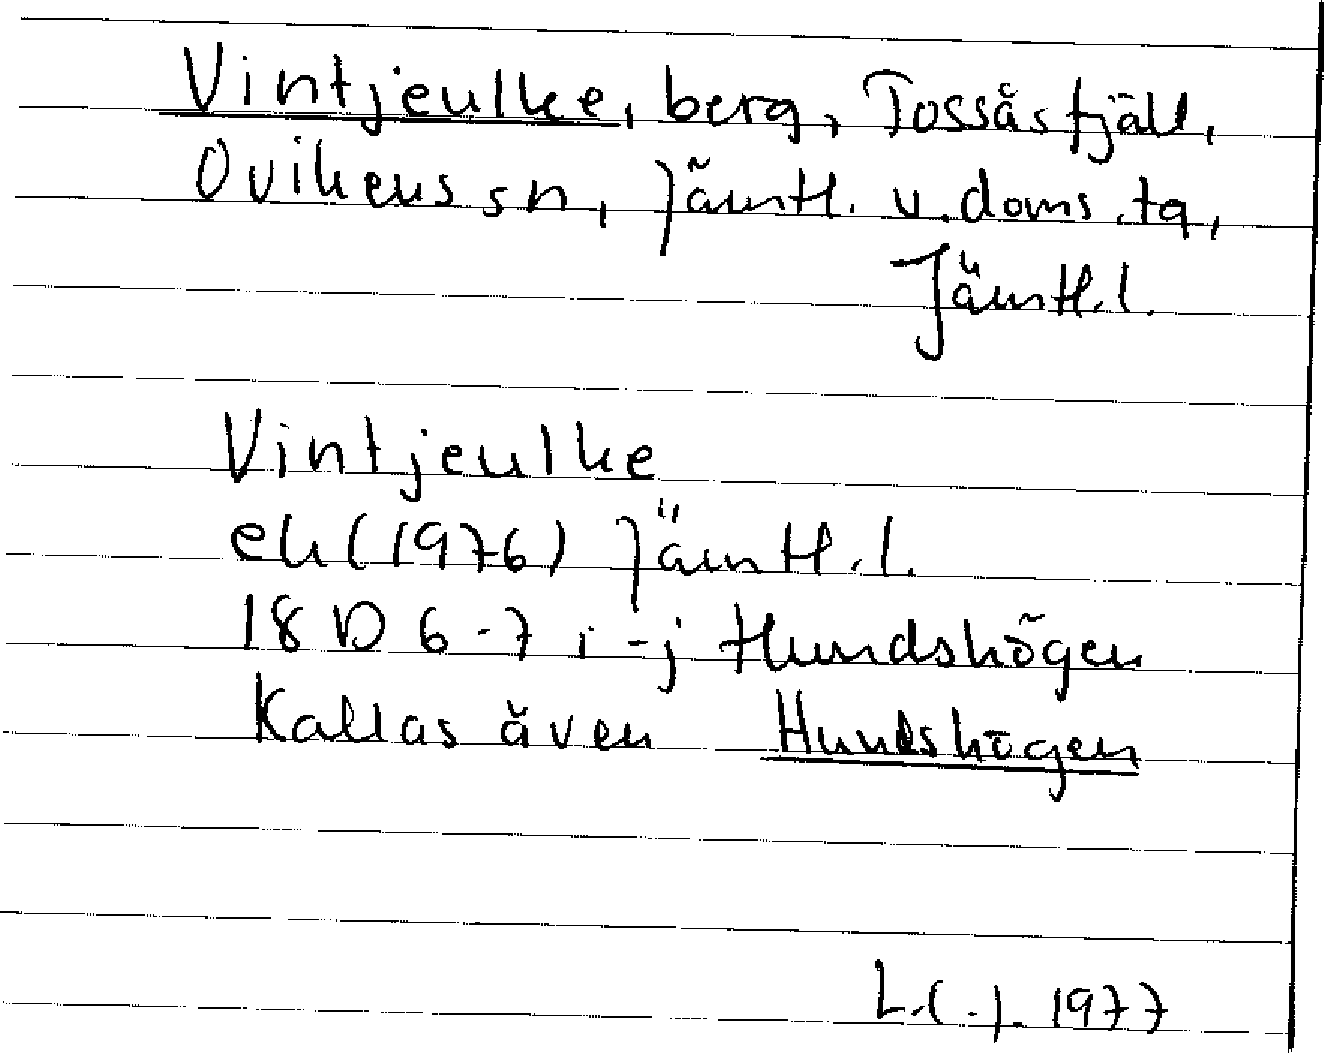 Vintjeulke, berg, Tossåsfjäll,
Ovikens sn, Jämtl. v. doms. tg,
Jämtl.l.
Vintjeulke
ek (1976) Jämtl.l.
18 D 6-7 i-j Hundshögen
Kallas även Hundshögen
1977